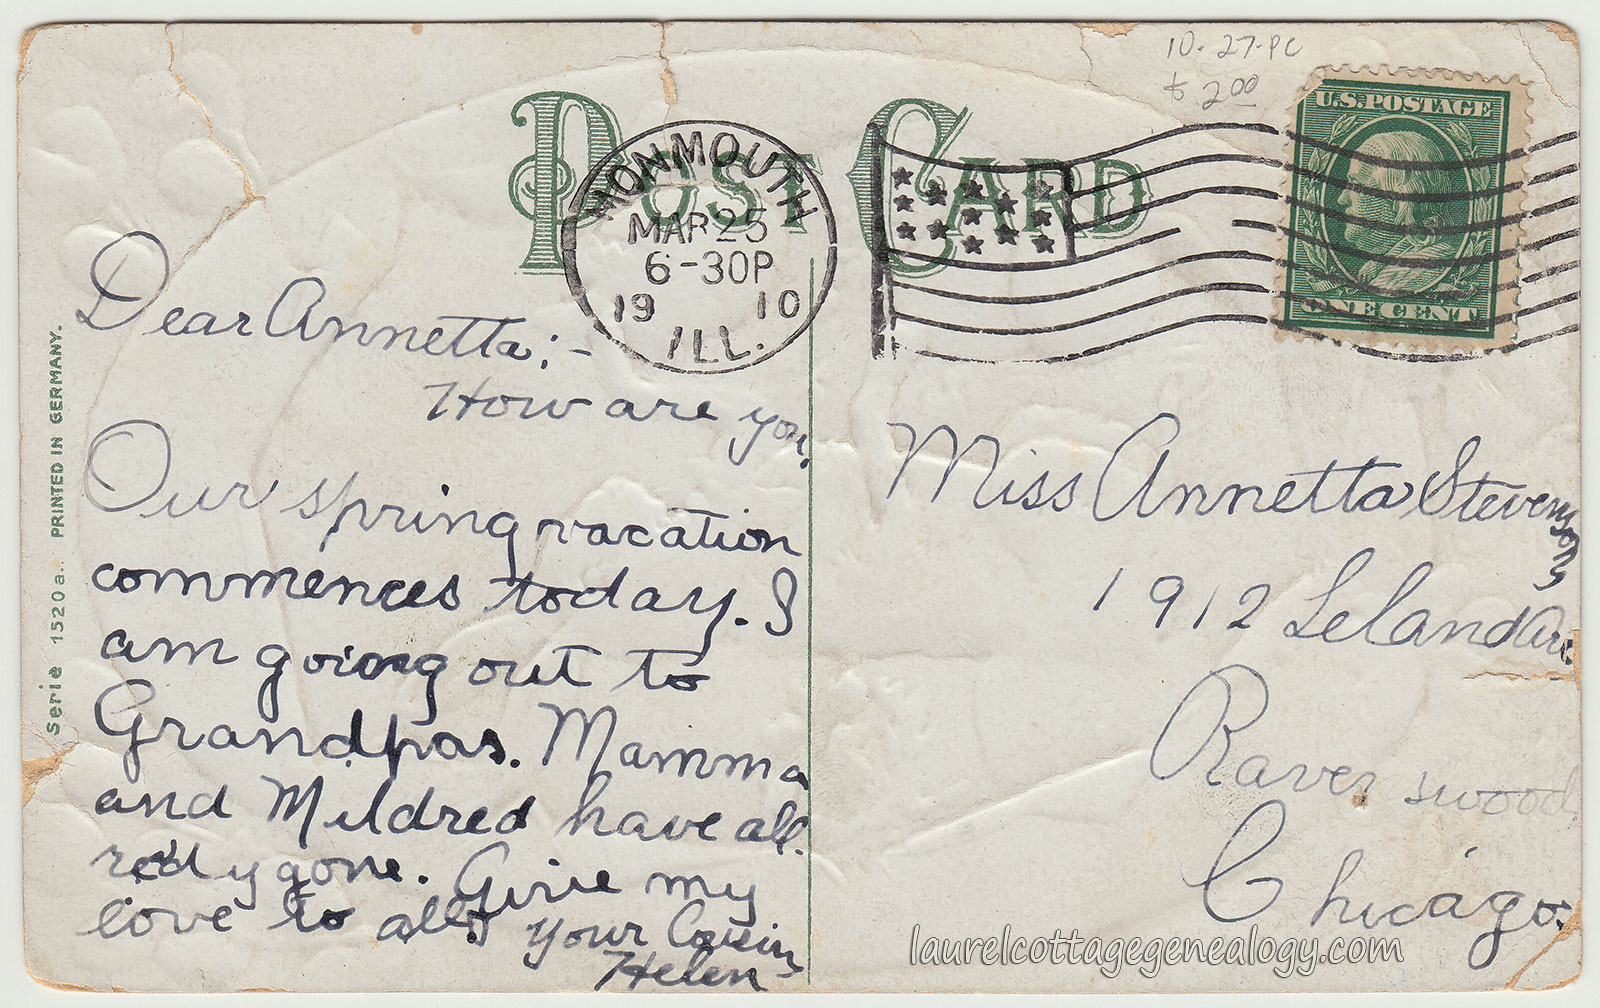 10-27-PC
$ 2.00
POST CARD
U.S. POSTAGE
ONE CENT
MONMOUTH
MAR 25
6-30P
19 10
ILL.
Serie 1520 a.. PRINTED IN GERMANY.
Dear Annetta;-
How are you.
Our spring vacation
commences today. I
am going out to
Grandpas. Mamma
and Mildred have all
redy gone. Give my
love to all. Your Cousin
Helen
Miss Annetta Stevenson,
1912 Leland Ave.
Ravenswood
Chicago.
laurelcottagegenealogy.com